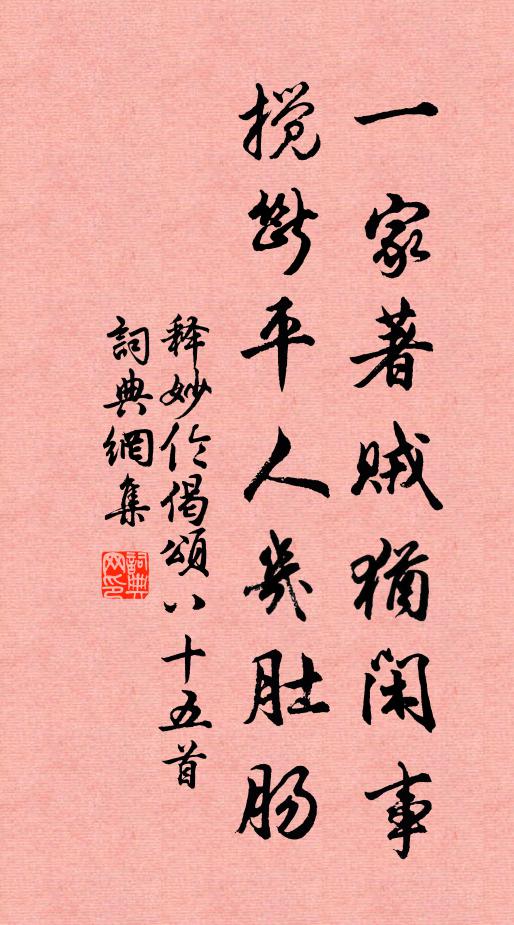 一家著贼犹闲事
搅断平人几肚肠
释妙伦偈颂八十五首
詞典網集
詞典网印